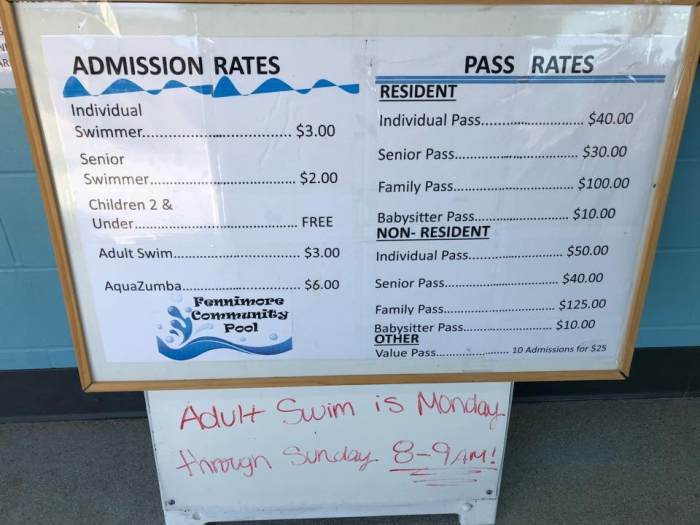 ADMISSION RATES
Individual
Swimmer........................... $3.00
Senior
Swimmer........................... $2.00
Children 2 &
Under.............................. FREE
Adult Swim....................... $3.00
AquaZumba..................... $6.00
Fennimore
Community
Pool
PASS RATES
RESIDENT
Individual Pass..................... $40.00
Senior Pass......................... $30.00
Family Pass......................... $100.00
Babysitter Pass.................... $10.00
NON- RESIDENT
Individual Pass.................... $50.00
Senior Pass......................... $40.00
Family Pass......................... $125.00
Babysitter Pass.................... $10.00
OTHER
Value Pass................... 10 Admissions for $25
Adult Swim is Monday
through Sunday 8-9AM!